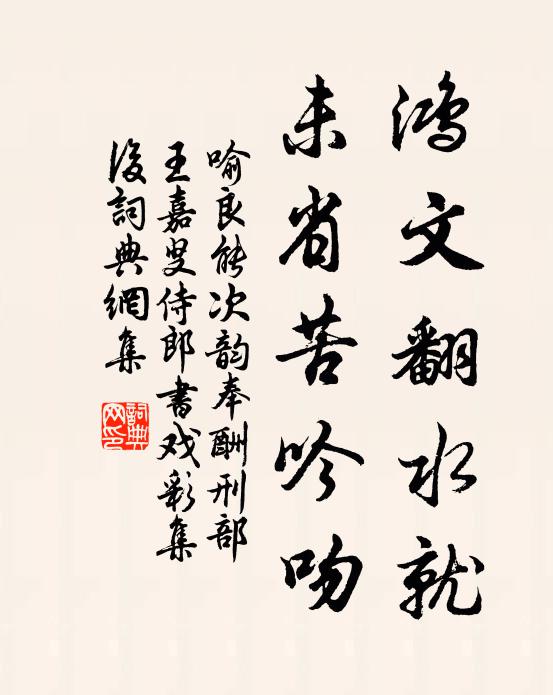 鸿文翻水就
未省苦吟吻
喻良能次韵奉酬刑部
王嘉叟侍郎书戏彩集
後詞典網集
詞典网印